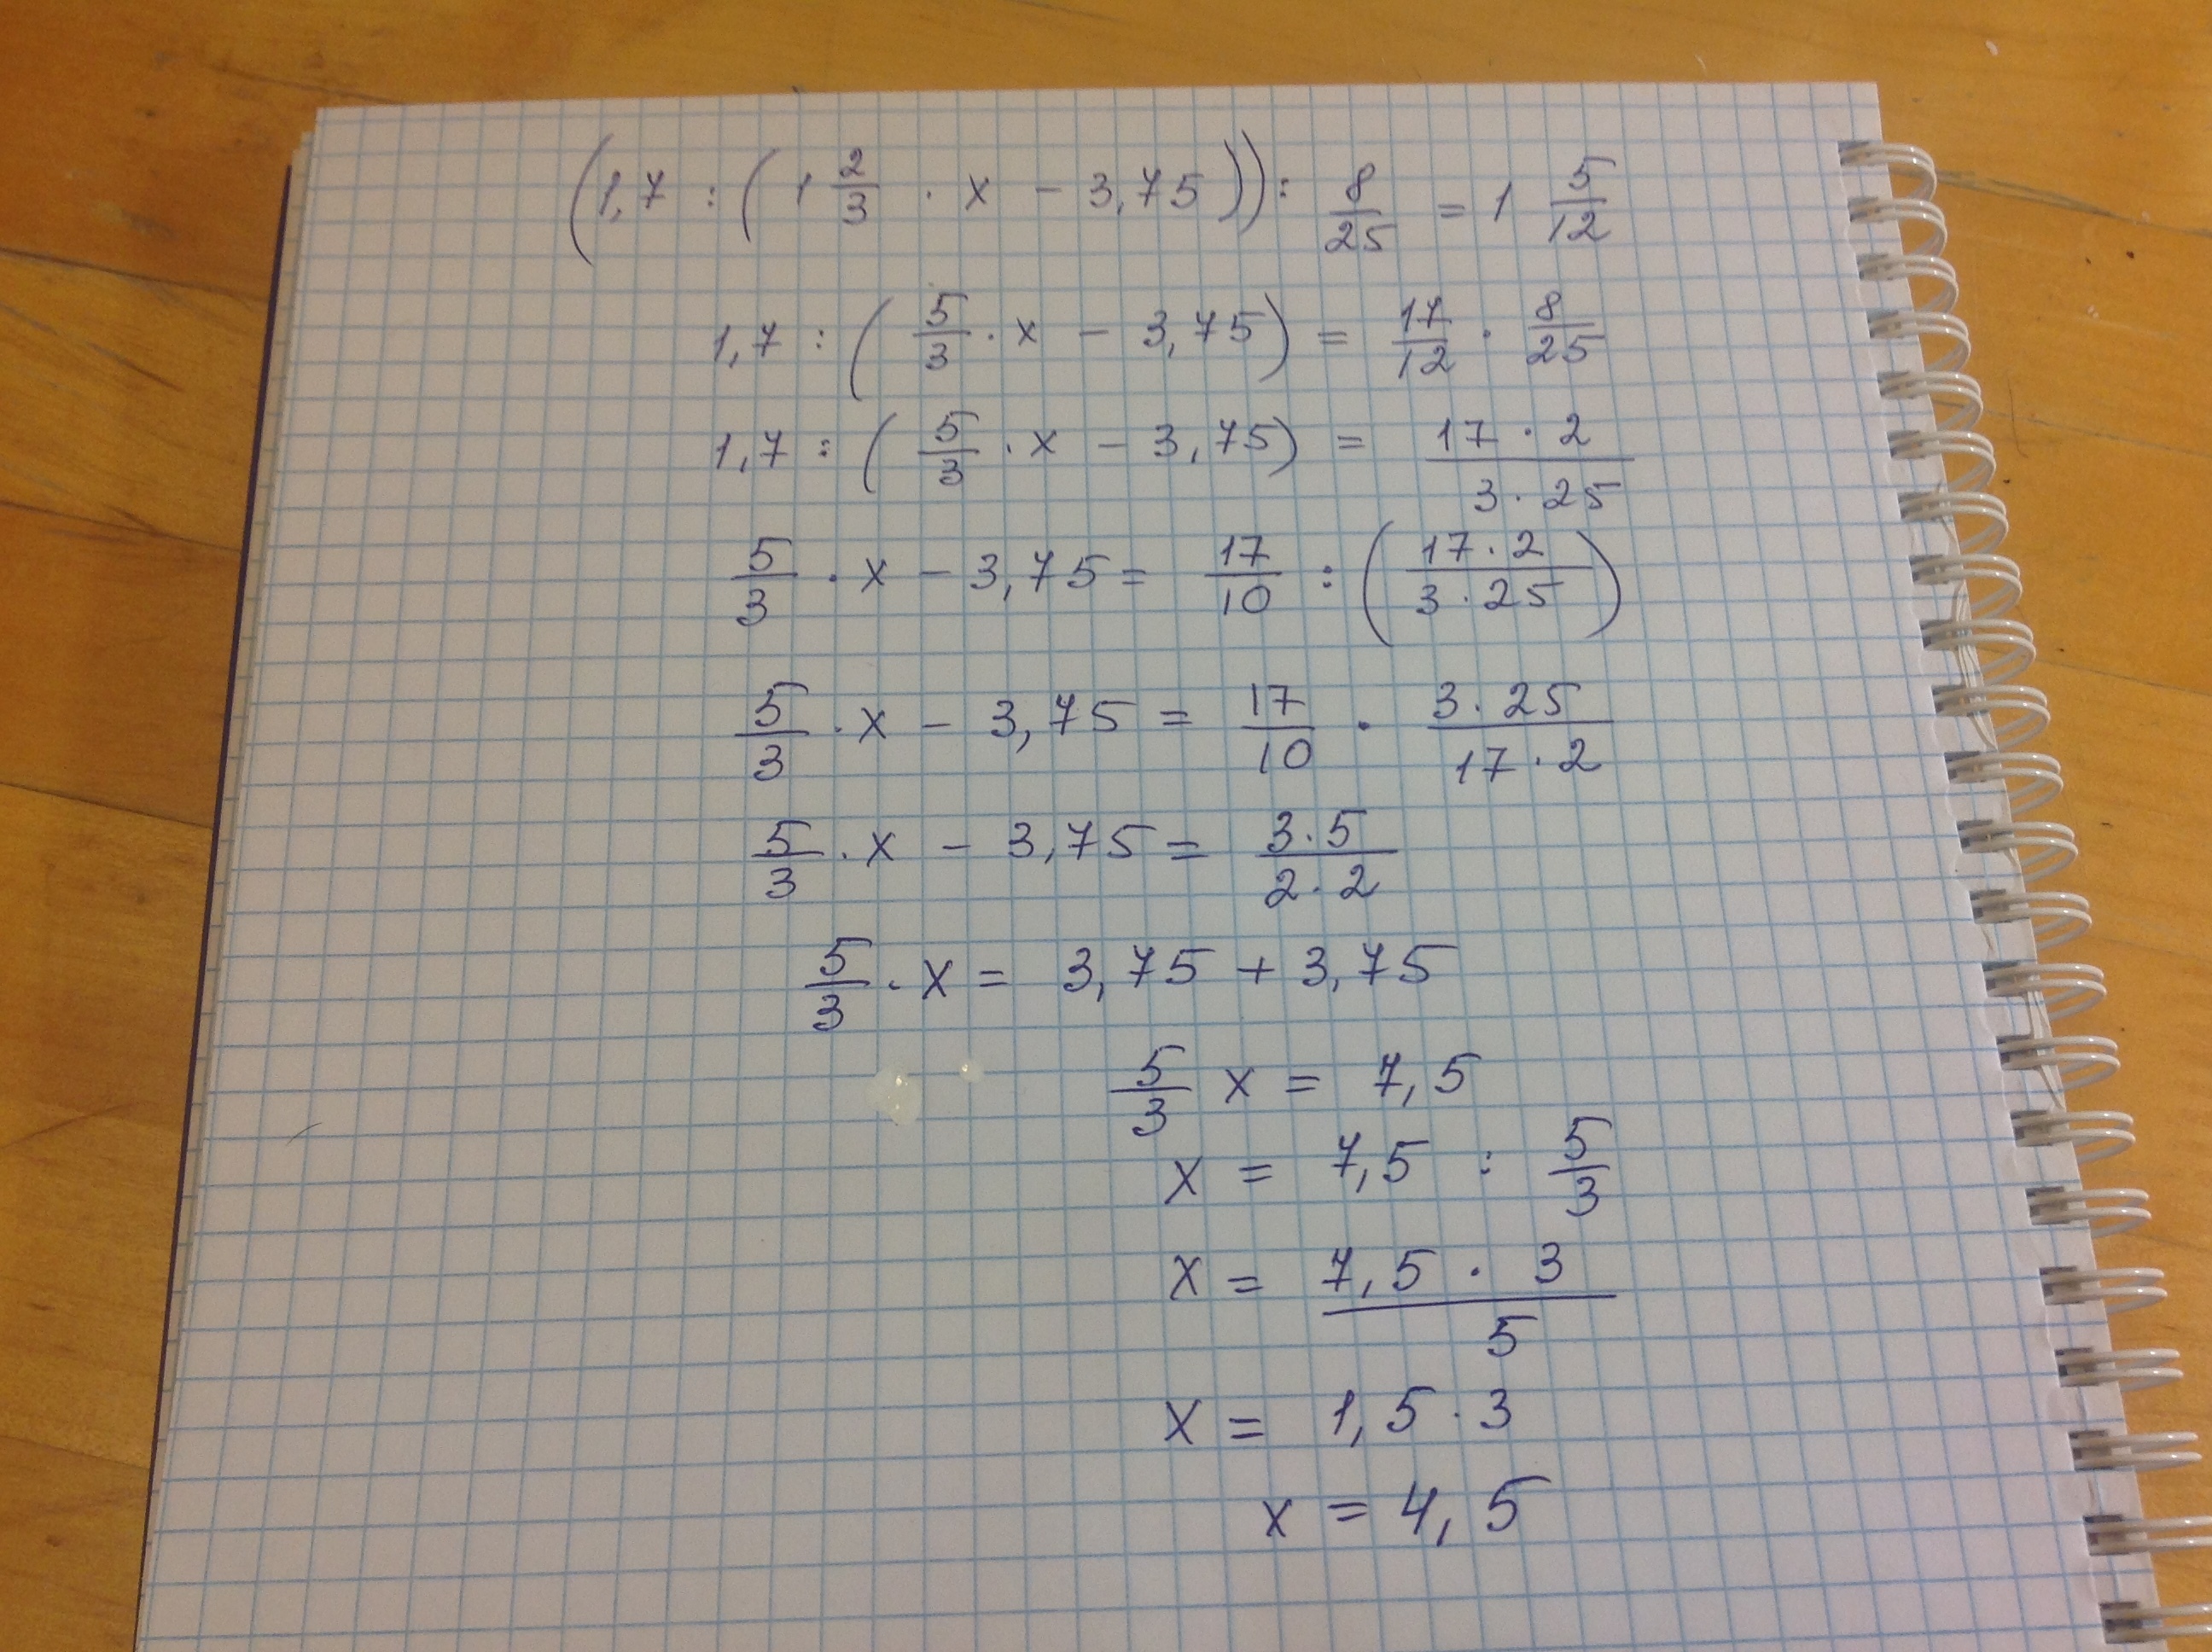 (1,7 : (1 2/3 · x - 3,75)) : 8/25 = 1 5/12
1,7 : (5/3 · x - 3,75) = 17/12 · 8/25
1,7 : (5/3 · x - 3,75) = 17 · 2 / 3 · 25
5/3 · x - 3,75 = 17/10 : (17 · 2 / 3 · 25)
5/3 · x - 3,75 = 17/10 · 3 · 25 / 17 · 2
5/3 · x - 3,75 = 3 · 5 / 2 · 2
5/3 · x = 3,75 + 3,75
5/3 x = 7,5
x = 7,5 : 5/3
x = 7,5 · 3 / 5
x = 1,5 · 3
x = 4,5